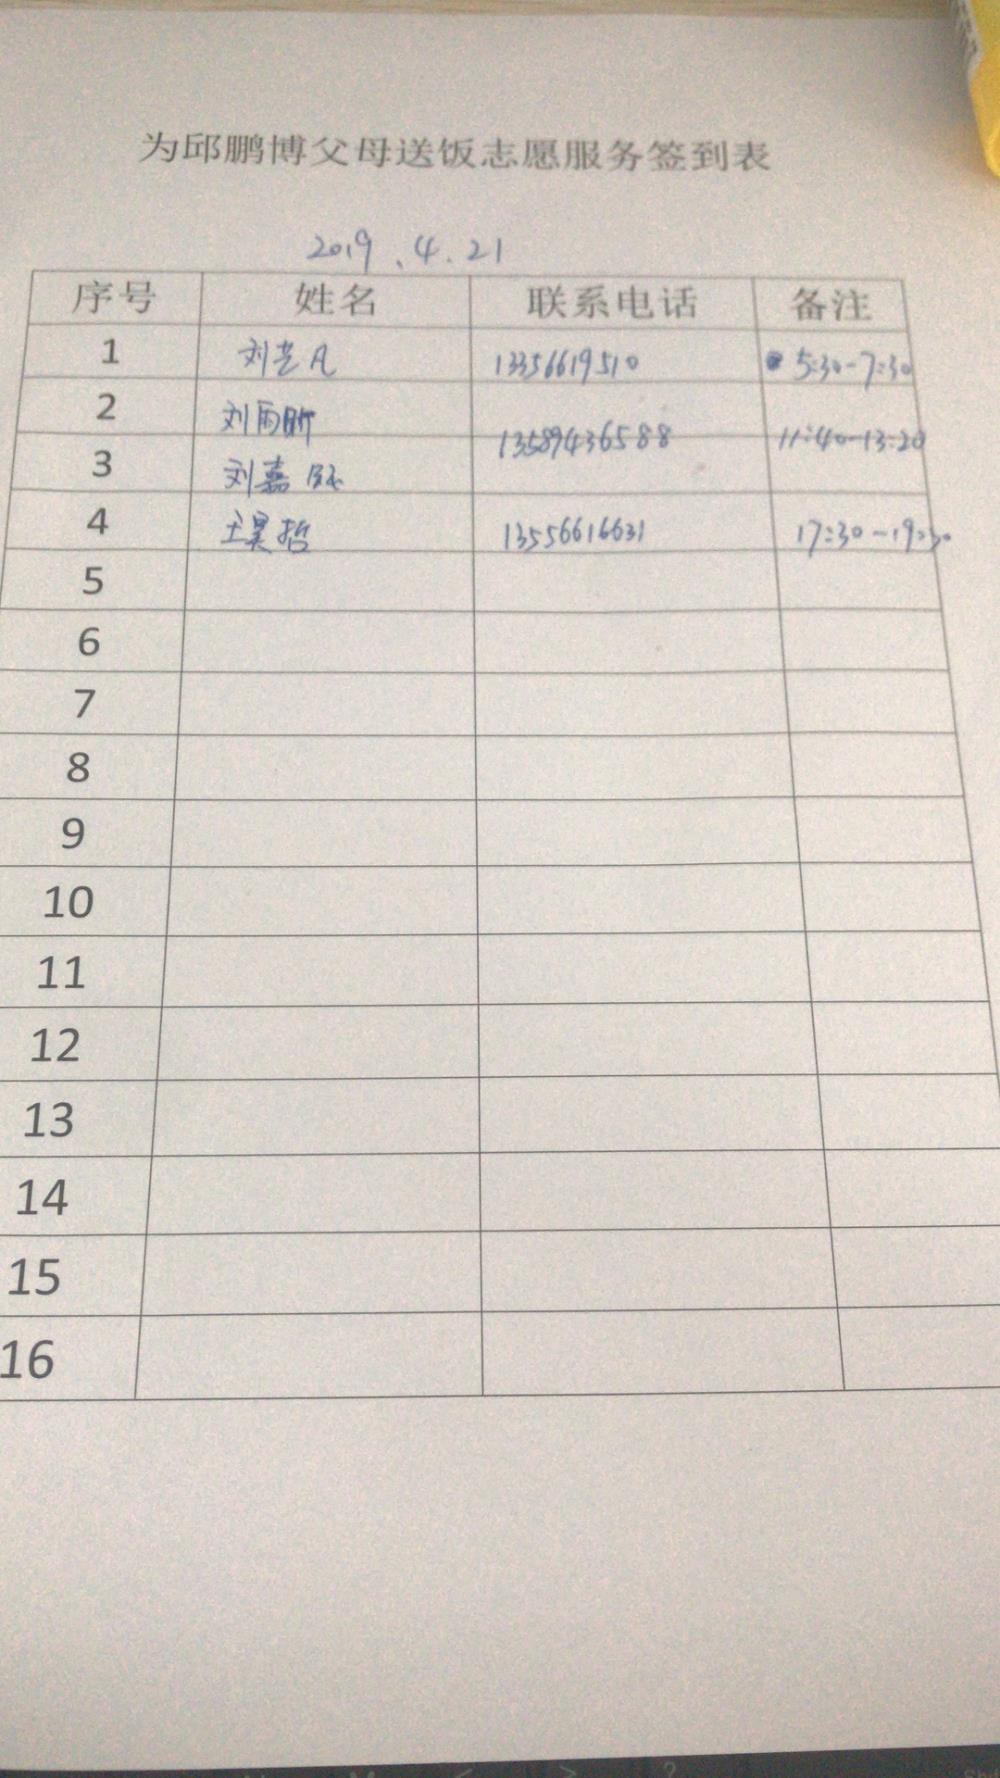 为邱鹏博父母送饭志愿服务签到表
2019.4.21
序号 姓名 联系电话 备注
1 刘芸凡 13356619510 5:30-7:30
2 刘雨昕
13589436588 11:40-13:20
3 刘嘉
4 王昊哲 13556616631 17:30-19:30
5
6
7
8
9
10
11
12
13
14
15
16